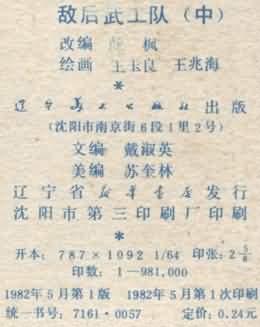 敌后武工队（中）
改编 枫
绘画 王玉良 王兆海
*
辽宁美术出版社出版
（沈阳市南京街6段1里2号）
文编 戴淑英
美编 苏奎林
辽宁省新华书店发行
沈阳市第三印刷厂印刷
*
开本：787×1092 1/64 印张：2 5/8
印数：1—981,000
1982年5月第1版 1982年5月第1次印刷
统一书号：7161·0057 定价：0.24元